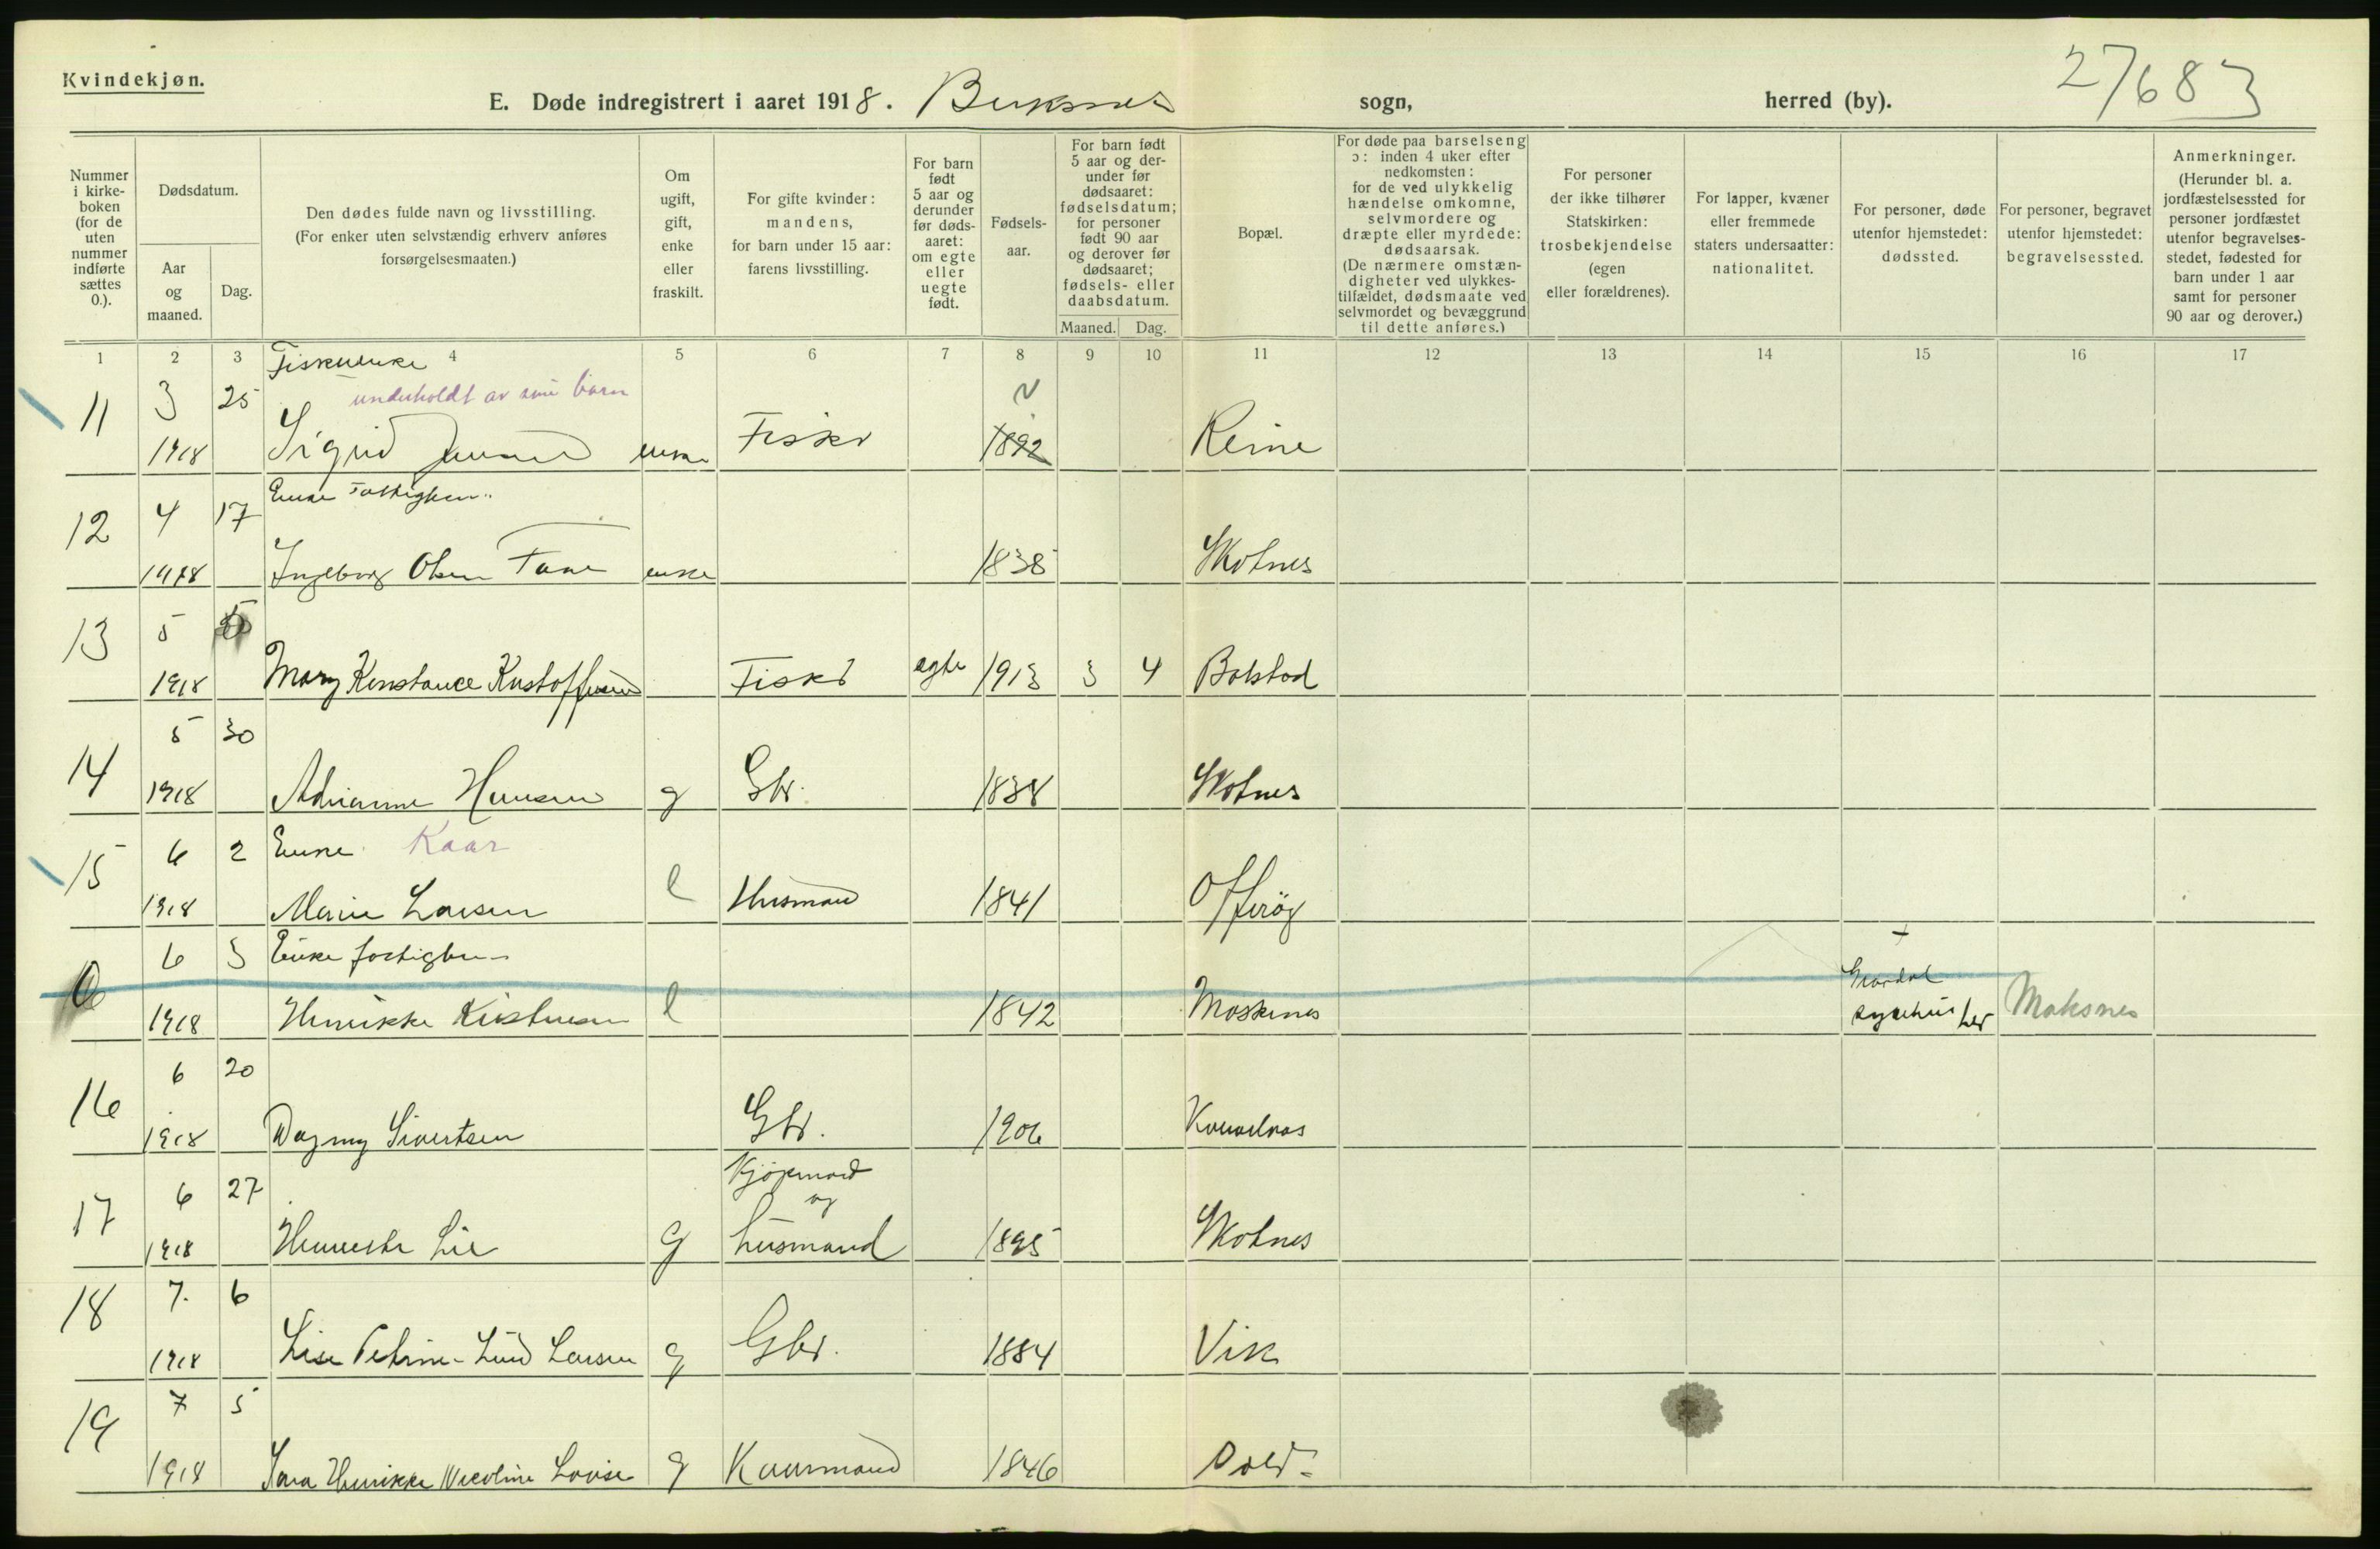 Kvindekjøn.
27683
E. Døde indregistrert i aaret 1918. Buksnes sogn, herred (by).
Nummer i kirkeboken (for de uten nummer indførte sættes 0.).
Dødsdatum.
Aar og maaned.
Dag.
Den dødes fulde navn og livsstilling.
(For enker uten selvstændig erhverv anføres forsørgelsesmaaten.)
Om ugift, gift, enke eller fraskilt.
For gifte kvinder: mandens, for barn under 15 aar: farens livsstilling.
For barn født 5 aar og derunder før dødsaaret: om egte eller uegte født.
Fødselsaar.
For barn født 5 aar og derunder før dødsaaret: fødselsdatum; for personer født 90 aar og derover før dødsaaret; fødsels- eller daabsdatum.
Maaned. Dag.
Bopæl.
For døde paa barselseng ɔ: inden 4 uker efter nedkomsten: for de ved ulykkelig hændelse omkomne, selvmordere og dræpte eller myrdede: dødsaarsak. (De nærmere omstændigheter ved ulykkestilfældet, dødsmaate ved selvmordet og bevæggrund til dette anføres.)
For personer der ikke tilhører Statskirken: trosbekjendelse (egen eller forældrenes).
For lapper, kvæner eller fremmede staters undersaatter: nationalitet.
For personer, døde utenfor hjemstedet: dødssted.
For personer, begravet utenfor hjemstedet: begravelsessted.
Anmerkninger. (Herunder bl. a. jordfæstelsessted for personer jordfæstet utenfor begravelsesstedet, fødested for barn under 1 aar samt for personer 90 aar og derover.)
1 2 3 4 5 6 7 8 9 10 11 12 13 14 15 16 17
Fiskerenke
11 3 25 underholdt av sine barn
1918 Sigrid Jensen enke Fisker 1892 Reine
12 4 17 Enke Fattigken
1918 Ingeborg Olsen enke 1838 Skotnes
13 5
1918 Mary Konstance Kristoffersen Fisker egte 1913 3 4 Bolstad
14 5 30
1918 Adrianne Hansen g Gbr. 1838 Skotnes
15 6 2 Enke Kaar
1918 Marie Larsen e Husmand 1841 Offersøy
0 6 3 Enke fattigken
1918 Henrikke Kristensen e 1842 Moskenes Gravdal sykehus her Moksnes
16 6 20
1918 Dagny Sivertsen Gbr. 1906
17 6 27 Kjøpmand og
1918 Lie g husmand 1895 Skotnes
18 7. 6
1918 Lise Petrine Lund Larsen g Gbr. 1884 Vik
19 7 5
1918 Sara Henrikke Nicoline Lovise g Kaarmand 1846